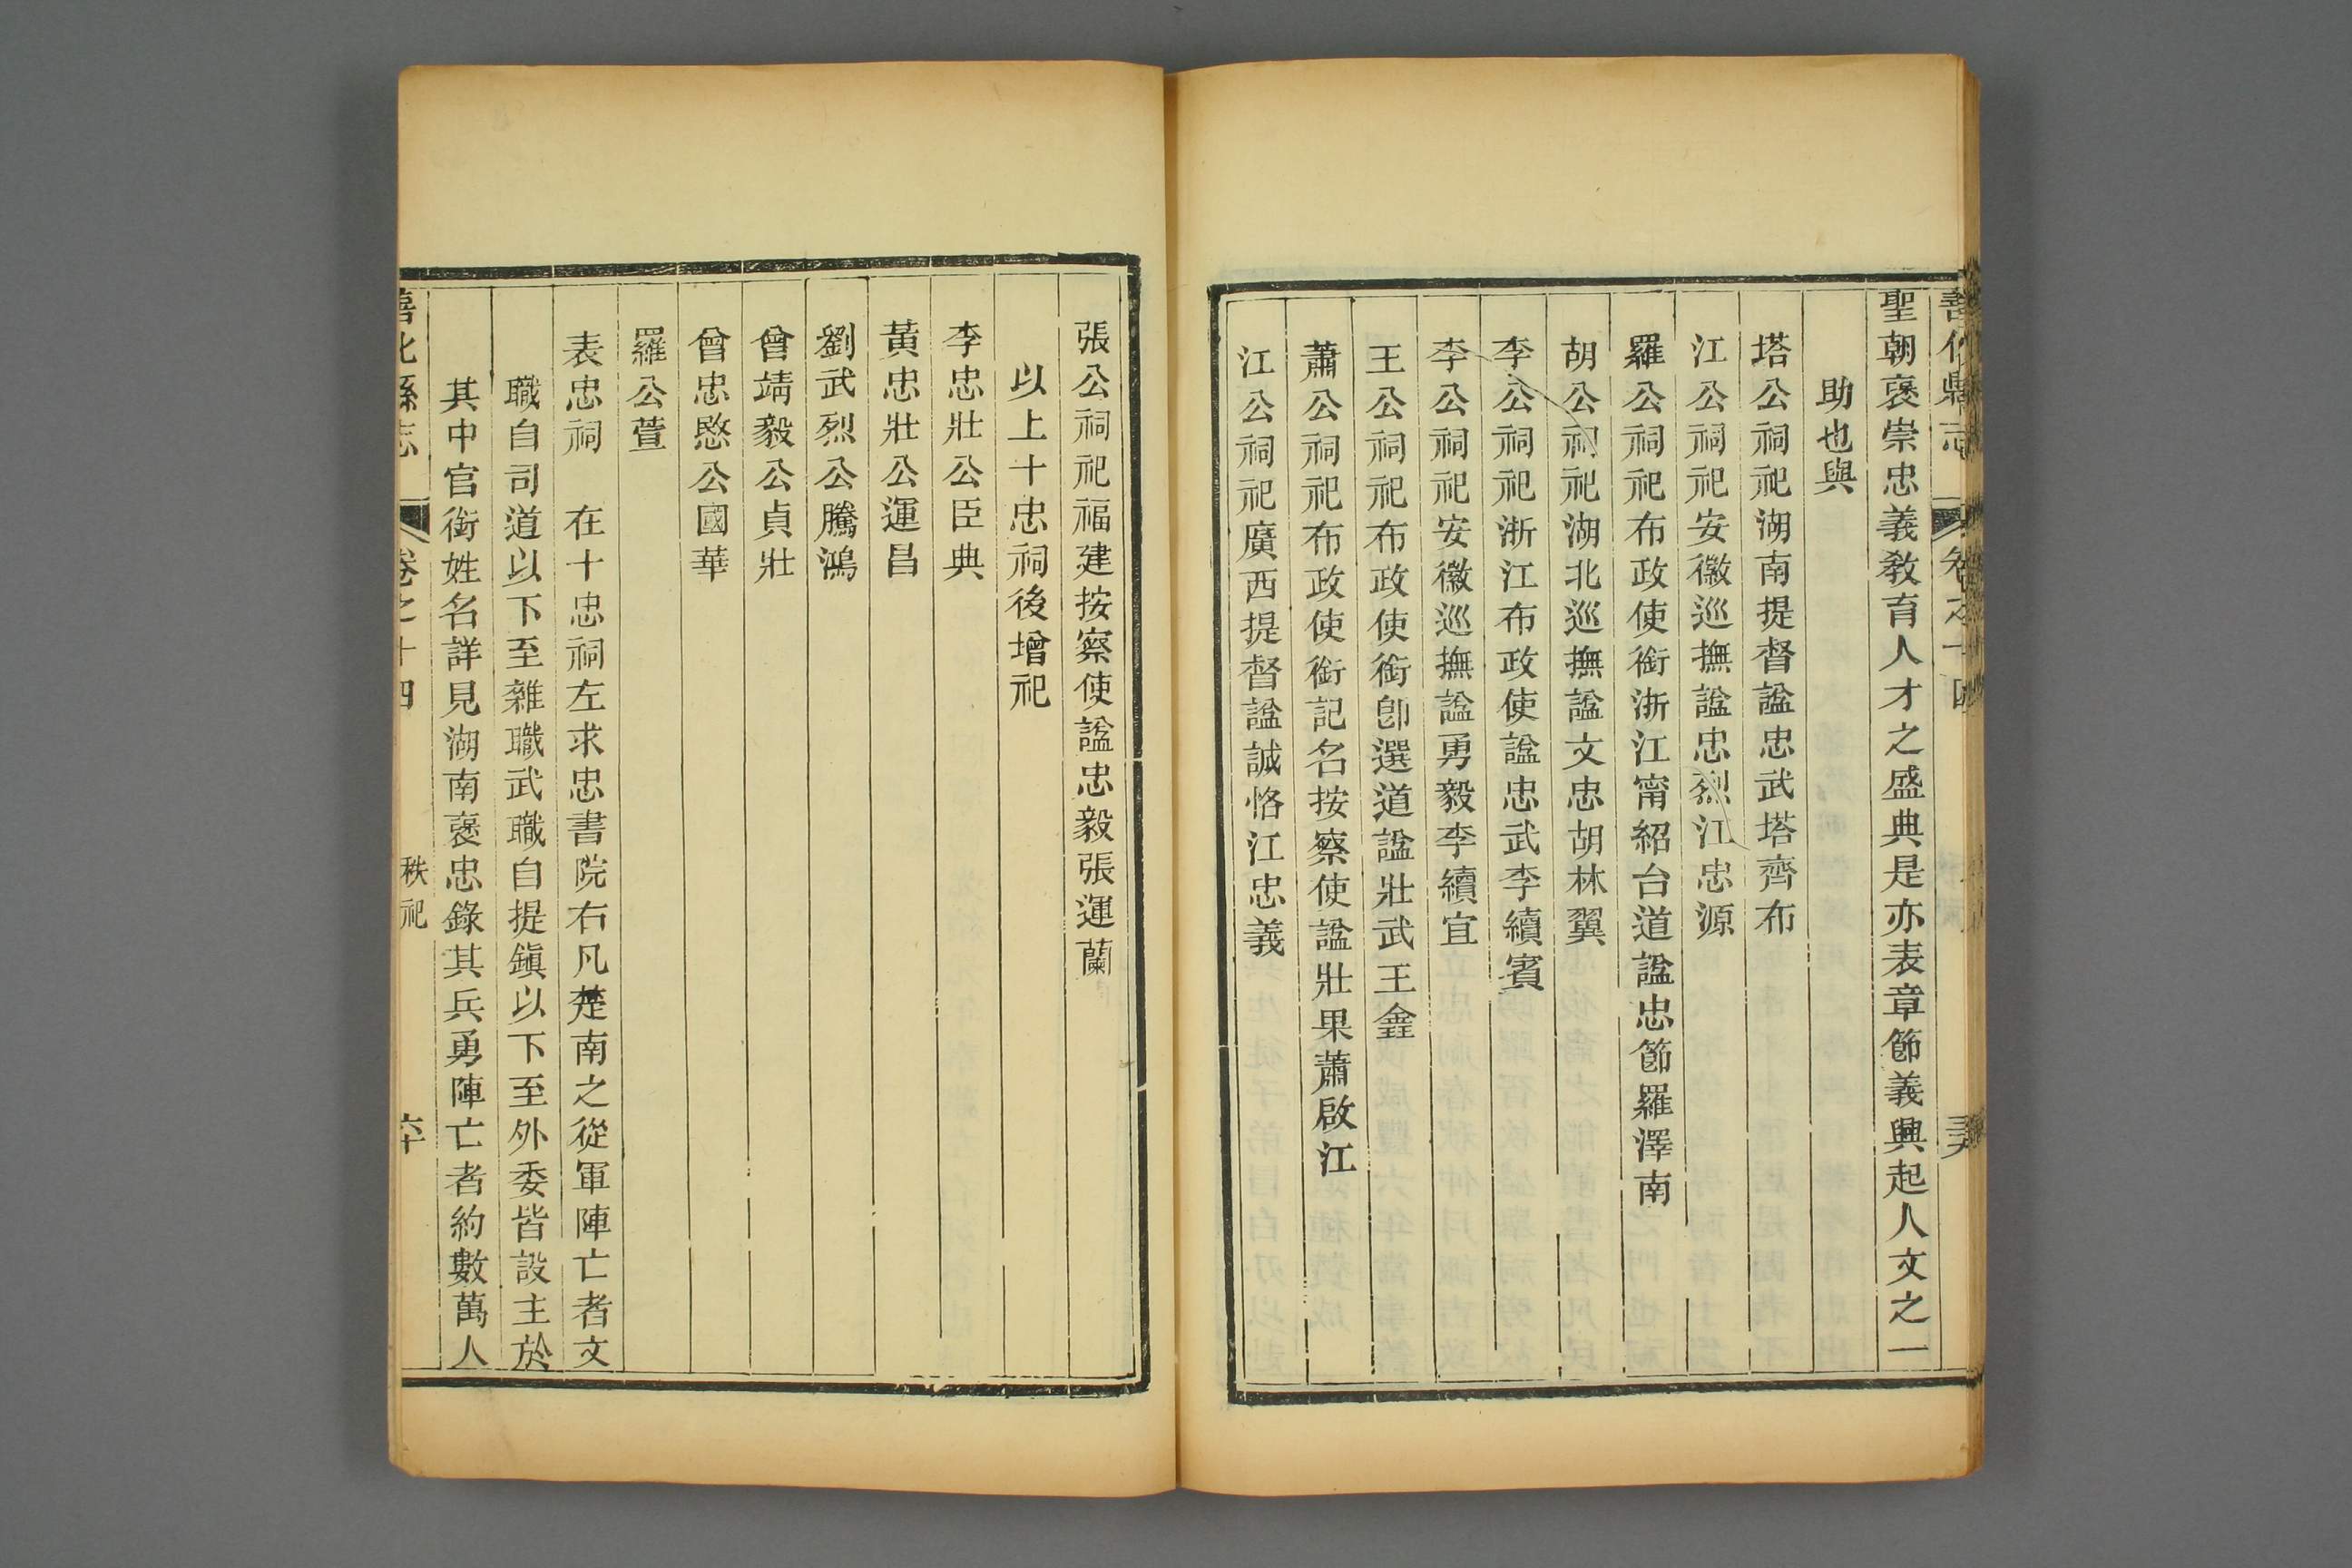 善化縣志 卷之十四
聖朝褒崇忠義教育人才之盛典是亦表章節義興起人文之一
助也與
塔公祠祀湖南提督諡忠武塔齊布
江公祠祀安徽巡撫諡忠烈江忠源
羅公祠祀布政使銜浙江甯紹台道諡忠節羅澤南
胡公祠祀湖北巡撫諡文忠胡林翼
李公祠祀浙江布政使諡忠武李續賓
李公祠祀安徽巡撫諡勇毅李續宜
王公祠祀布政使銜卽選道諡壯武王鑫
蕭公祠祀布政使銜記名按察使諡壯果蕭啟江
江公祠祀廣西提督諡誠恪江忠義
張公祠祀福建按察使諡忠毅張運蘭
以上十忠祠後增祀
李忠壯公臣典
黃忠壯公運昌
劉武烈公騰鴻
曾靖毅公貞壯
曾忠愍公國華
羅公萱
表忠祠 在十忠祠左求忠書院右凡楚南之從軍陣亡者文
職自司道以下至雜職武職自提鎭以下至外委皆設主於
其中官銜姓名詳見湖南褒忠錄其兵勇陣亡者約數萬人
善化縣志 卷之十四 秩祀